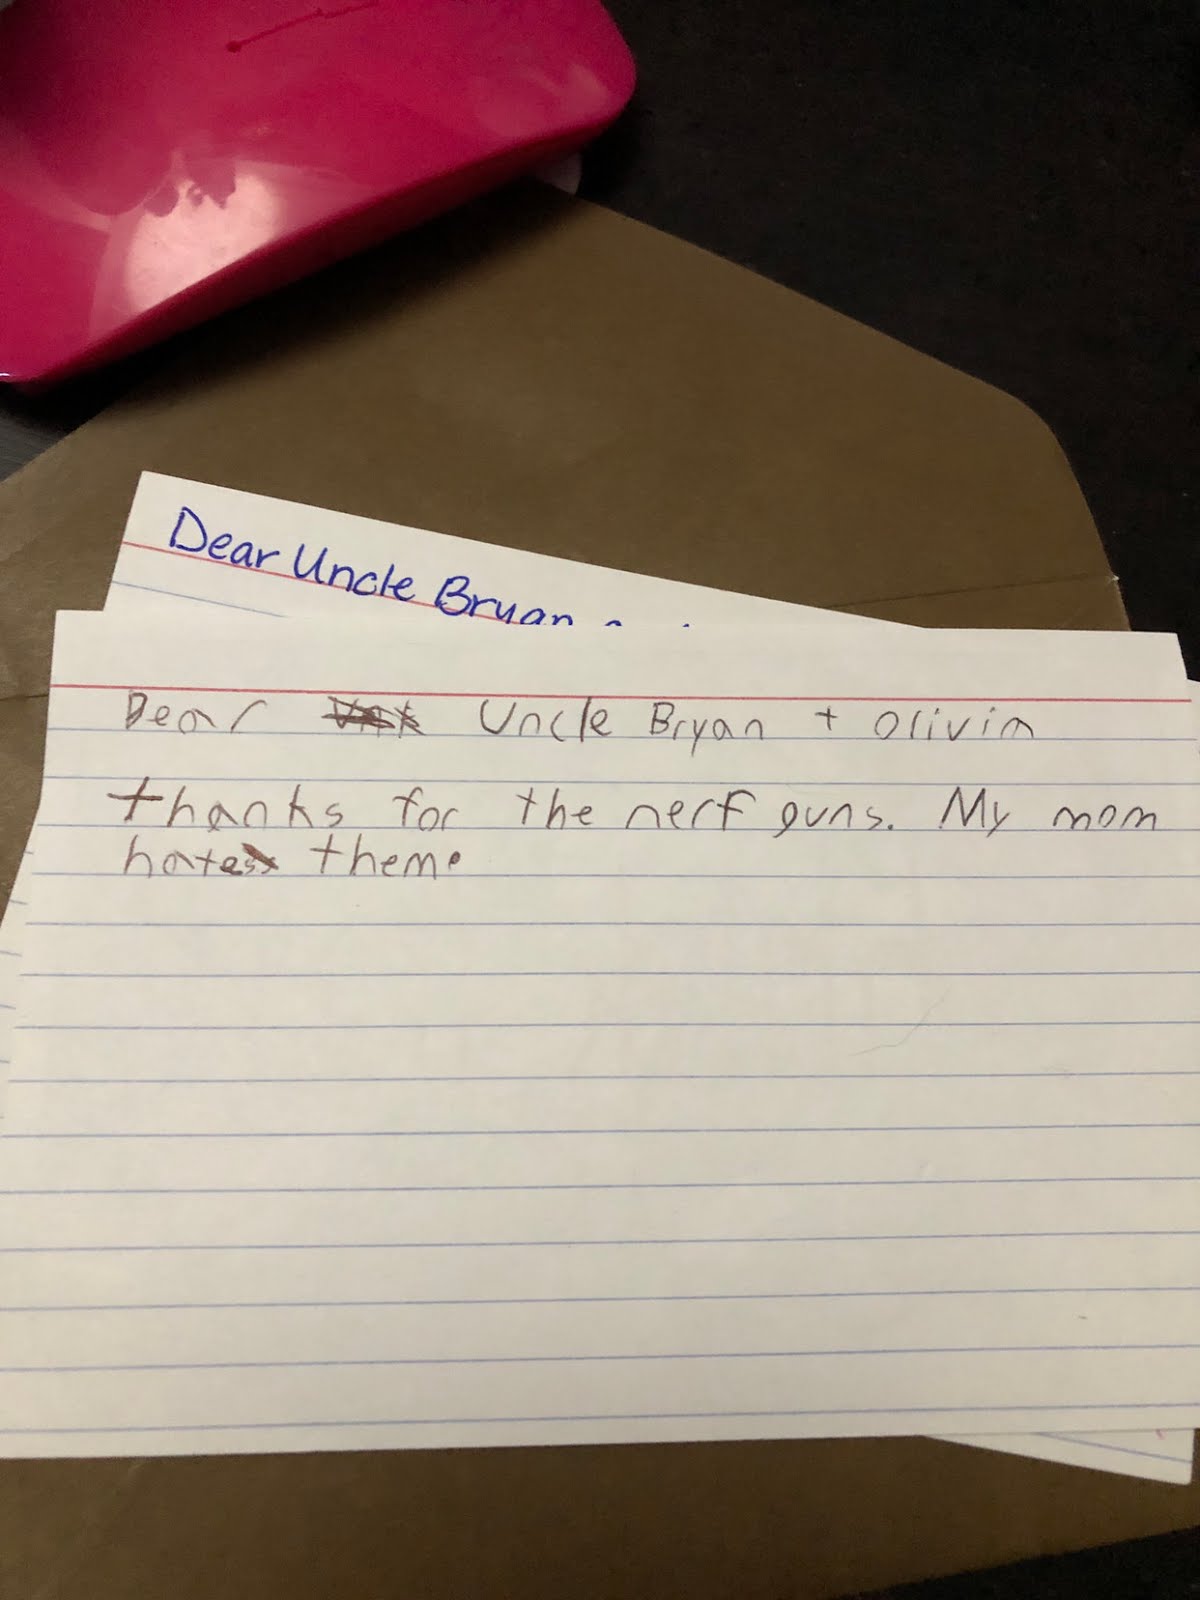 Dear Uncle Bryan
Dear Uncle Bryan + Olivia
thanks for the nerf guns. My mom
hates them.